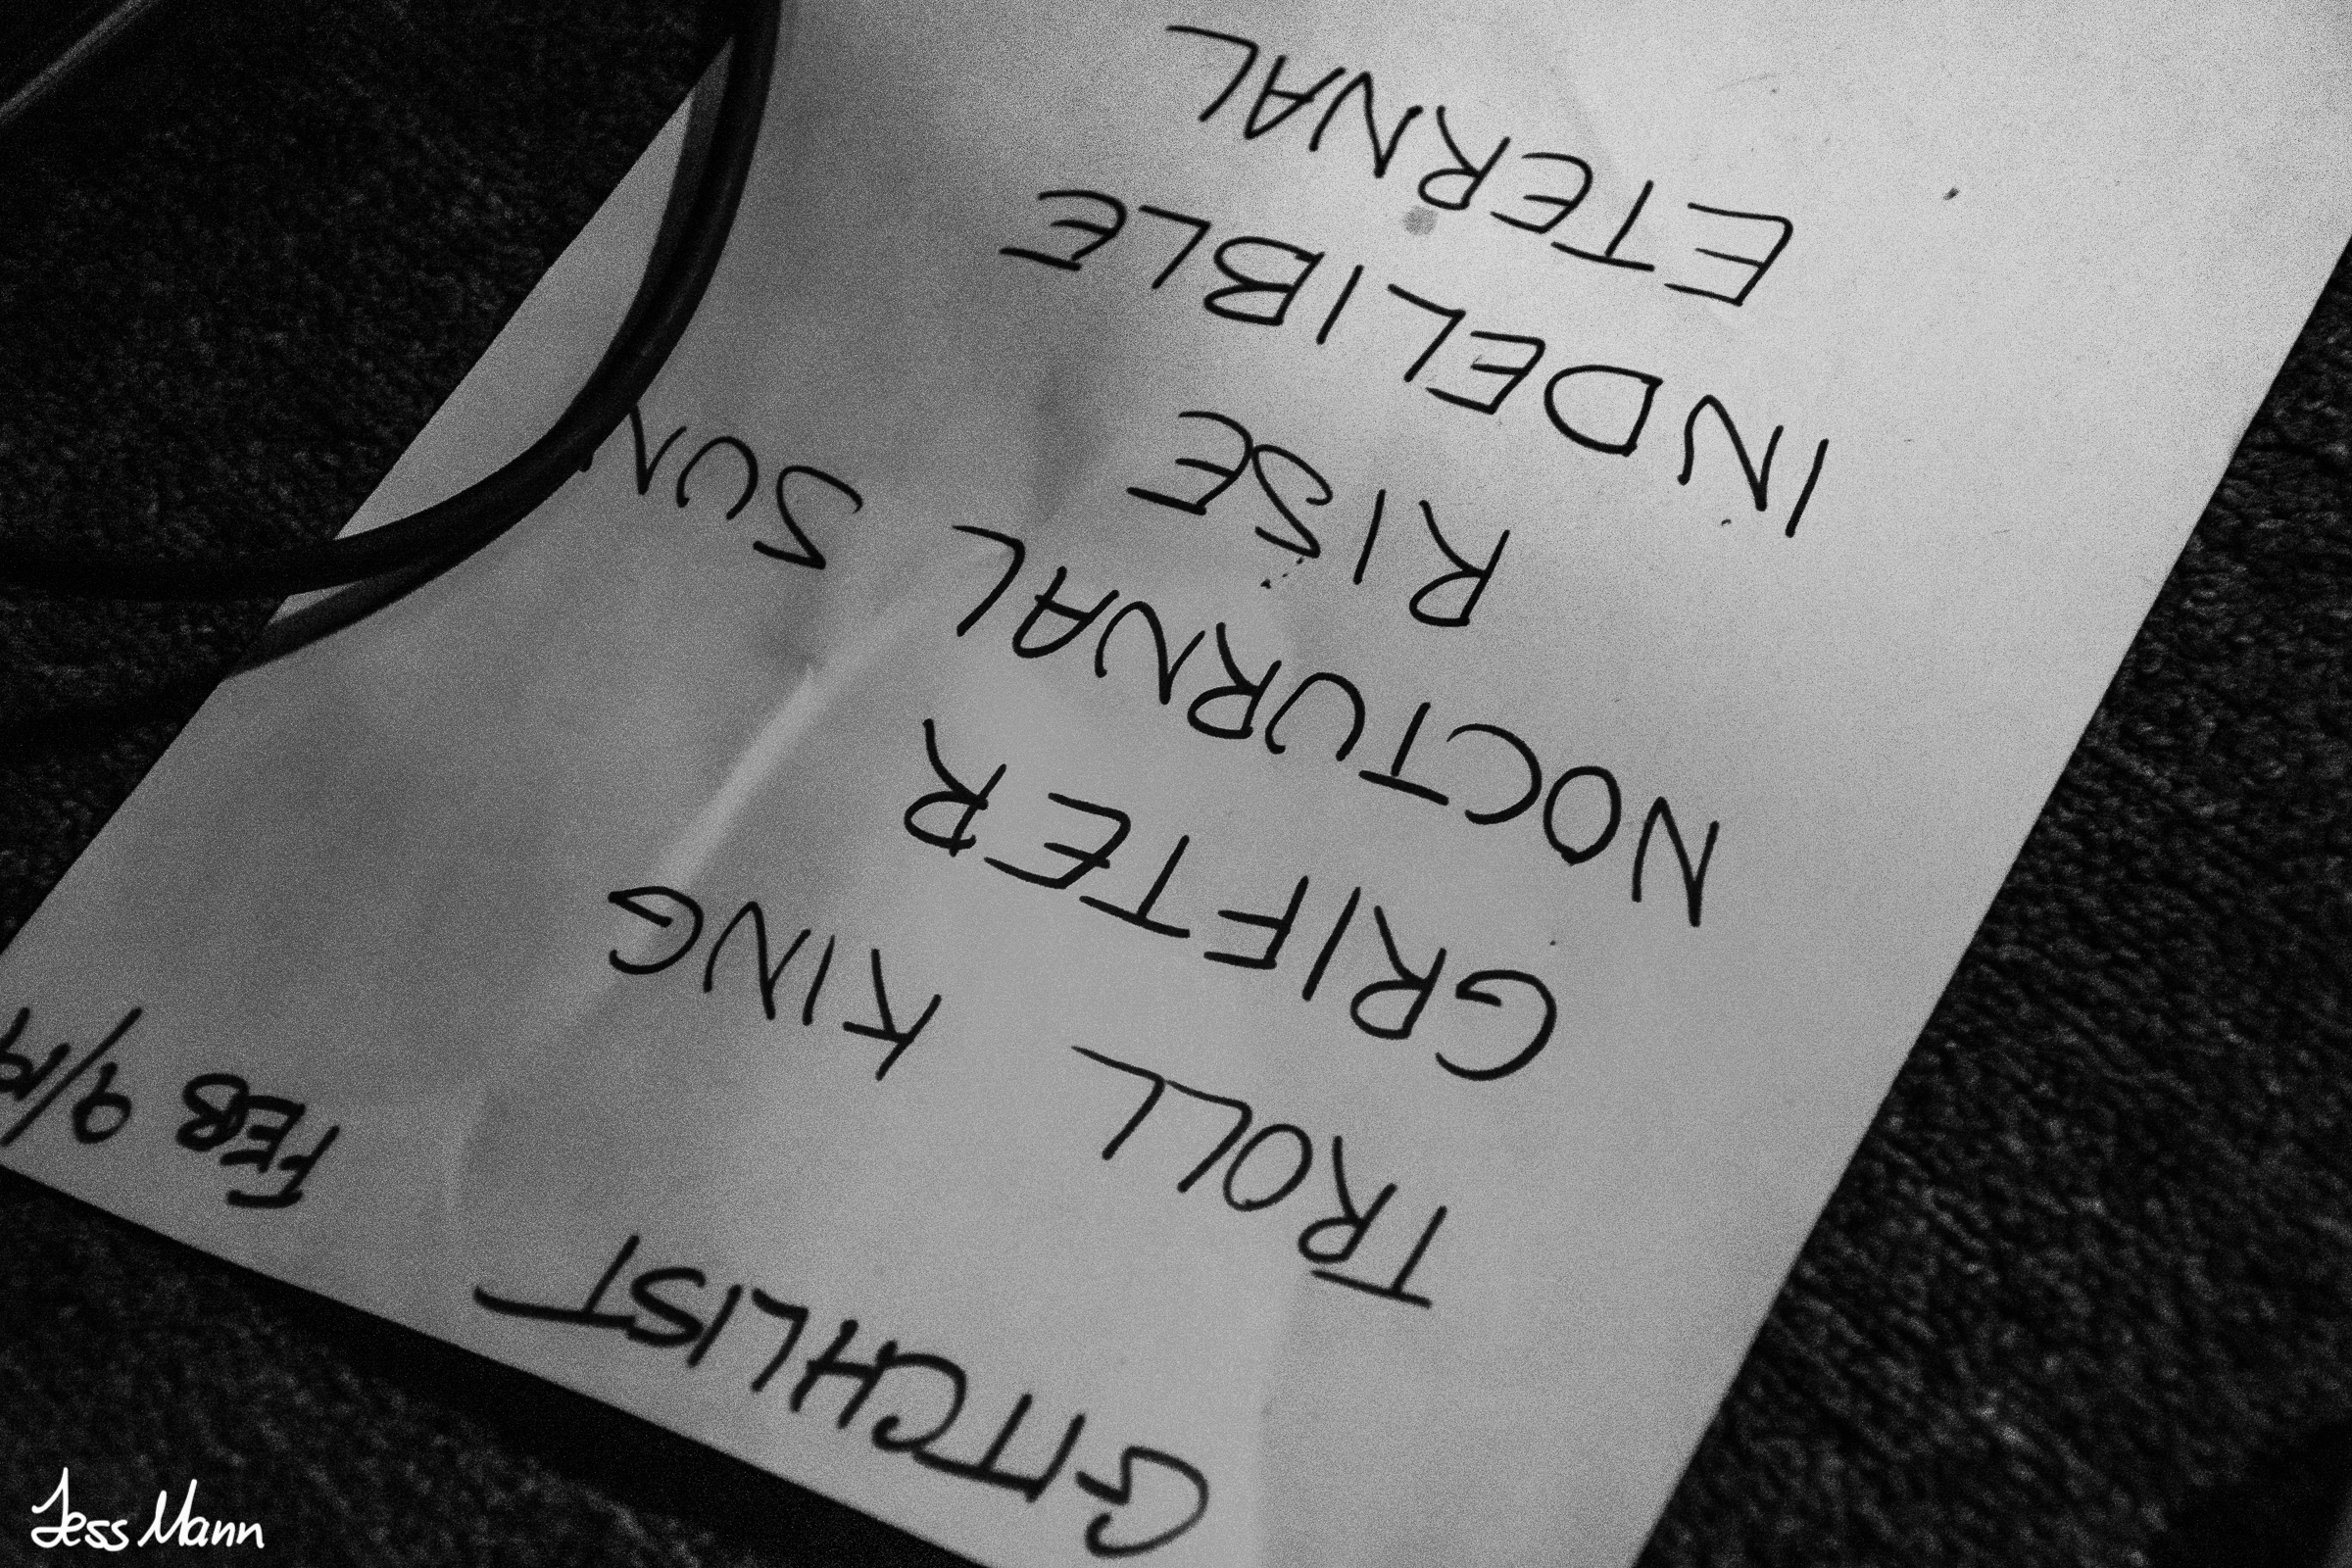 GITCHLIST
FEB 9/19
TROLL KING
GRIFTER
NOCTURNAL SUN
RISE
INDELIBLE
ETERNAL
Jess Mann